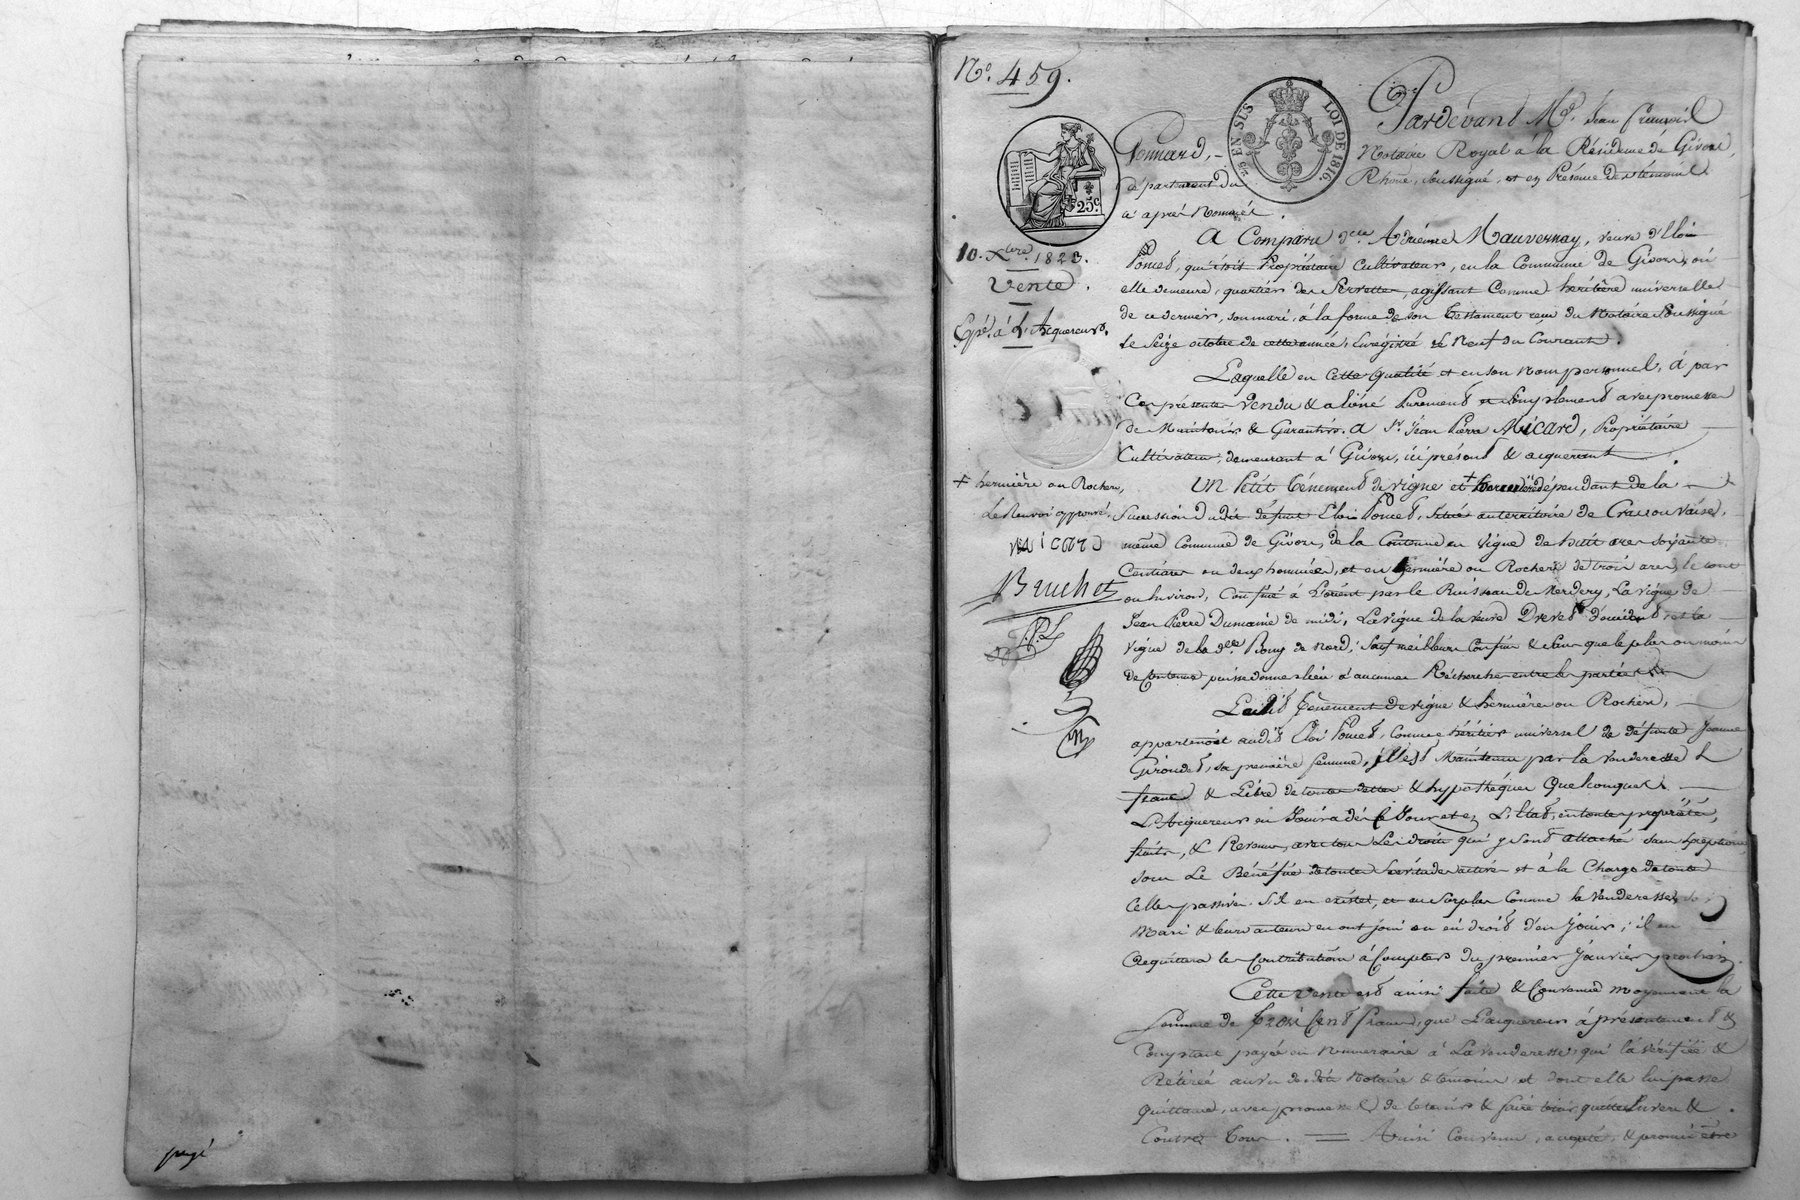 N.º 459.
25 EN SUS
LOI DE 1816.
25.c
Pardevant M.e Jean François
Gonnard, Notaire Royal à la Résidence de Givors,
département du Rhône, soussigné, et en Présence des témoins
ci après Nommés.
10. Xbre. 1823.
Vente.
Expé. à L'Acquereur.
A Comparu d.lle Adrienne Mauvernay, veuve d'Eloi
Poncet, qui étoit Propriétaire Cultivateur, en la Commune de Givors, où
elle demeure, quartier de Servette, agissant Comme héritière universelle
de ce dernier, son mari, à la forme de son testament reçu du Notaire Soussigné
le Seize octobre de cette année, Enrégistré le Neuf du Courant.
Laquelle en Cette Qualité et en son Nom personnel, à par
Ces présentes vendu & aliéné Purement et Simplement avec promesse
de Maintenir & Garantir. A Sr. Jean Pierre Micard, Propriétaire
Cultivateur, demeurant à Givors, ici présent & acquerant
UN Petit Ténement de vigne et + dépendant de la
+ hermière ou Rochers,
Le Renvoi approuvé,
micard
Bruchet
Succession dudit défunt Eloi Poncet, Situé au territoire de
même Commune de Givors, de la Contenue en Vigne de huit ares soixante
Centiares ou deux hommées, et en hermière ou Rochers de trois ares, le tout
ou Environ, Confiné à L'orient par le Ruisseau de Merdery, La vigne de
Jean Pierre Dumaine de midi, La vigne de la veuve Drevet d'occident et la
vigne de la d.lle Bouy de Nord; Sauf meilleurs Confins & sans que le plus ou moins
de Contenue puisse donner lieu à aucunes Recherches entre les parties.
Ledit Ténement de vigne & hermière ou Rochers,
appartenoit audit Eloi Poncet, Comme héritier universel de défunte Jeanne
Girondet, sa première femme, il est Maintenu par la Venderesse
franc & Libre de toutes dettes & hypothèques Quelconques.
L'Acquereur en Jouira dès Ce Jour et en L'Etat, en toute propriété,
fruits, & Revenus, avec tous Les droits qui y sont attachés sans Exception,
sous Le Bénéfice de toutes Servitudes actives et à la Charge de toutes
Celles passives S'il en existe, et au Surplus Comme la Venderesse, son
Mari & leurs auteurs en ont joui ou eu droit d'en Jouir; il en
acquittera les Contributions à Compter du premier Janvier prochain.
Cette Vente est ainsi faite & Convenue Moyennant la
Somme de Trois Cent francs, que L'acquereur à présentement &
Comptant payée en Numeraire à La venderesse, qui l'a vérifiée &
Retirée au vu desdits Notaire & témoins et dont elle lui passe
Quittance, avec promesse de le tenir & faire tenir quitte Envers &
Contre Tous. = Ainsi Convenu, accepté, & promis être
payé